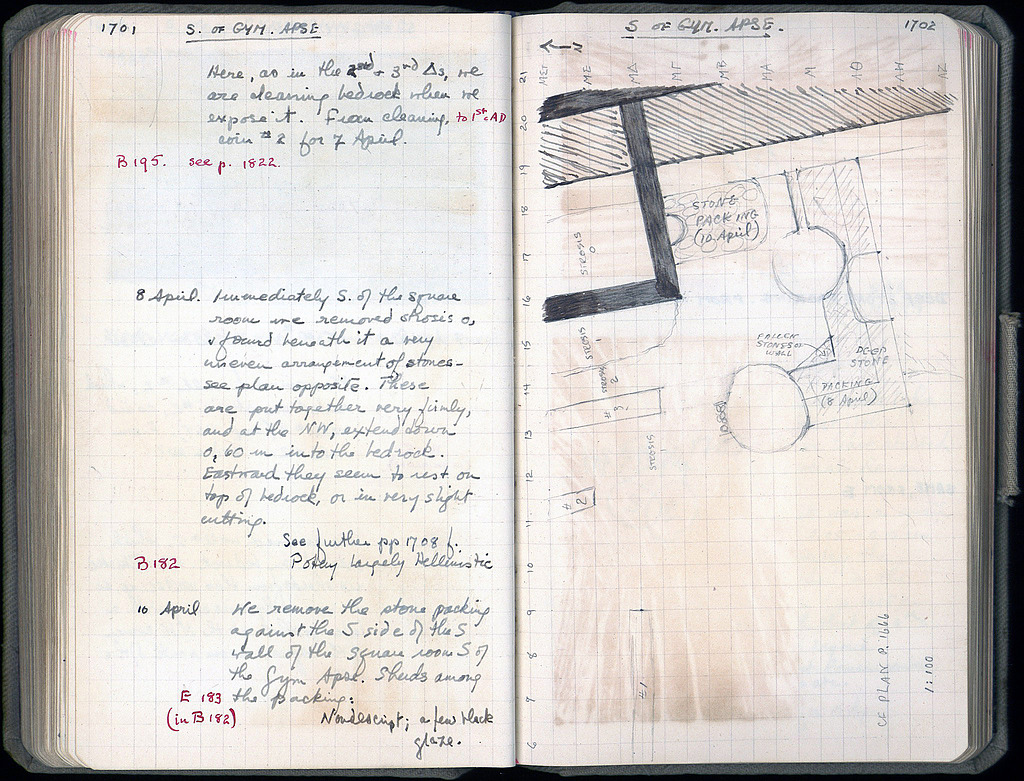 1701
S. OF GYM. APSE
Here, as in the 2nd + 3rd Δs, we
are cleaning bedrock when we
expose it. From cleaning, to 1st c AD
coin #2 for 7 April.
B 195. see p. 1822.
8 April. Immediately S. of the square
room we removed strosis 0,
& found beneath it a very
uneven arrangement of stones -
see plan opposite. These
are put together very firmly,
and at the NW, extend down
0,60 m into the bedrock.
Eastward they seem to rest on
top of bedrock, or in very slight
cutting.
See further pp 1708 f.
B 182 Pottery largely Hellenistic
10 April We remove the stone packing
against the S side of the S
wall of the square room S of
the Gym Apse. Sherds among
E 183 the packing:
(in B 182) Nondescript; a few black
glaze.
S. OF GYM. APSE.
1702
N
ΜΣΤ ΜΕ ΜΔ ΜΓ ΜΒ ΜΑ Μ ΛΘ ΛΗ ΛΖ
21
20
19
18
17
16
15
14
13
12
11
10
9
8
7
6
STONE
PACKING
(10 April)
STROSIS
0
FALLEN
STONES OF
WALL
DEEP
STONE
PACKING
(8 April)
STROSIS
1
STROSIS
2
#
3
STROSIS
#
2
#1
CF PLAN P. 1666
1:100